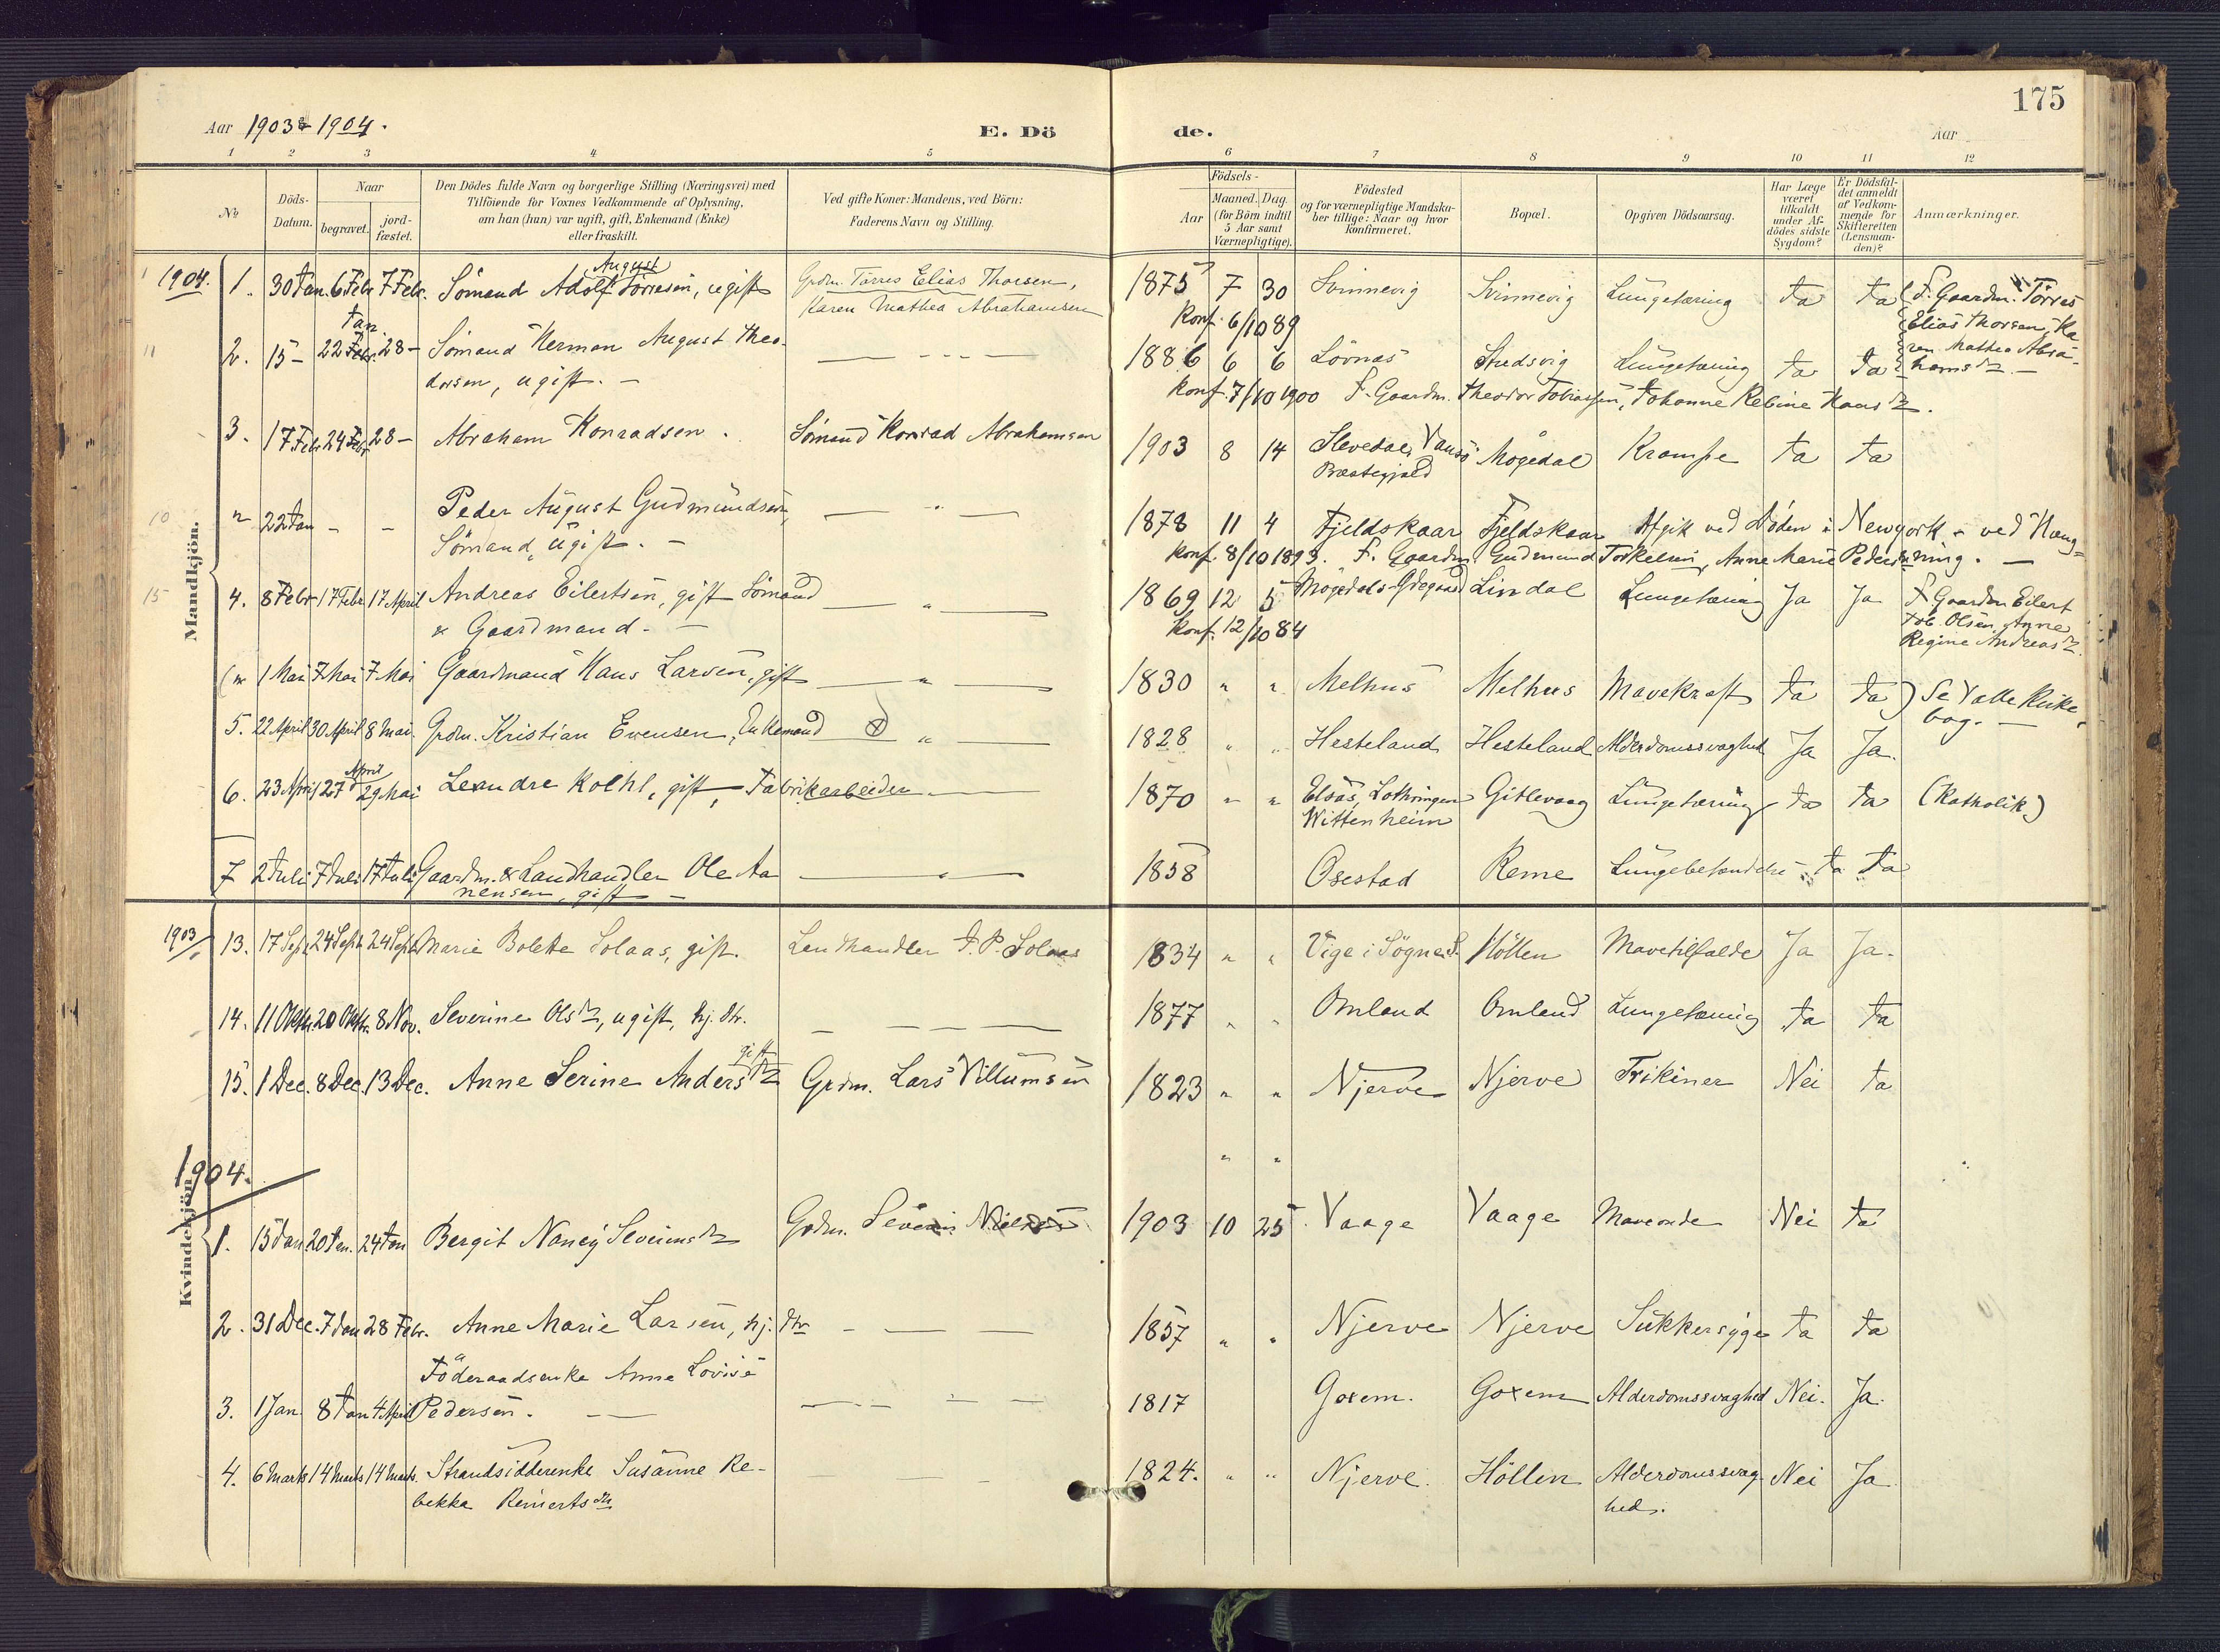 175
Aar 1903 & 1904.
E. Dö
de.
Aar
1 2 3 4 5 6 7 8 9 10 11 12
No
Döds-Datum.
Naar
begravet.
jord-fæstet.
Den Dödes fulde Navn og borgerlige Stilling (Næringsvei) med
Tilföiende for Voxnes Vedkommende af Oplysning,
om han (hun) var ugift, gift, Enkemand (Enke)
eller fraskilt.
Ved gifte Koner: Mandens, ved Börn:
Faderens Navn og Stilling.
Födsels-
Aar
Maaned. Dag.
(for Börn indtil
5 Aar samt
Værnepligtige).
Födested
og for værnepligtige Mandska-
ber tillige: Naar og hvor
konfirmeret.
Bopæl.
Opgiven Dödsaarsag.
Har Læge
været
tilkaldt
under Af-
dödes sidste
Sygdom?
Er Dödsfal-
det anmeldt
af Vedkom-
mende for
Skifteretten
(Lensman-
den)?
Anmærkninger.
Mandkjön.
1904. 1. 30 Jan. 6 Febr 7 Febr. Sömand Adolf August Torresen, ugift Grdm. Tørres Elias Thorsen, Karen Mathea Abrahamsen 1875 7 30 Svinnevig Svinnevig Lungetæring Ja Ja F. Gaardm. Törres
Konf. 6/10 89 Elias Thorsen, Ka
ren Mathea Abra-
hamsdtr. —
2. 15 – 22 Jan 28 – Sömand Herman August Theo-
dorsen, ugift. — 1886 6 6 Lövnæs Studsvig Lungetæring Ja Ja
Konf. 7/10 1900 F. Gaardm. Theodor Tobiassen, Johanne Rebine Hansdtr.
3. 17 Febr 24 Febr 28 – Abraham Konradsen. Sömand Konrad Abrahamsen 1903 8 14 Vanse Præstegjæld Mögedal Krampe Ja Ja
" 22 Jan – – Peder August Gudmundsen,
Sömand, ugift. — 1878 11 4 Fjeldskaar Fjeldskaar Afgik ved Döden i Newyork – ved Hæng-
Konf. 8/10 1893. F. Gaardm. Gudmund Torkelsen, Anne Marie Pedersdtr ning. —
4. 8 Febr 17 Febr 17 April Andreas Eilertsen, gift Sömand
& Gaardmand. — 1869 12 5 Mögedals Ødegaard Lindal Lungetæring Ja Ja F. Gaardm Eilert
Konf. 12/10 84 Tob. Olsen, Anne
Regine Andreasdtr.
(" 1 Mai 7 Mai 7 Mai Gaardmand Hans Larsen, gift — " — 1830 " " Melhus Melhus Mavekræft Ja Ja) Se Valle Kirke-
bog. —
5. 22 April 30 April 8 Mai. Grdm. Kristian Evensen, Enkemand — " — 1828 " " Hesteland Hesteland Alderdomssvaghed Ja Ja.
6. 23 April 27 April 29 Mai Leandre Kolhl, gift, Fabrikarbeider. — 1870 " " Elsas, Lothringen Wittenheim Gitlevaag Lungetæring Ja Ja (Katholik)
7 2 Juli 7 Juli 17 Juli Gaardm. & Landhandler Ole Aa
nensen, gift — 1858 Osestad Reme Lungebetændelse Ja Ja
Kvindekjön
1903 13. 17 Sept 24 Sept 24 Sept Marie Bolette Solaas, gift. Landhandler J. P. Solaas 1834 " " Vige i Sögne S. Höllen Mavetilfælde Ja Ja.
14. 11 Oktbr. 20 Oktbr. 8 Nov. Severine Olsdtr, ugift, hj. dtr. 1877 " " Omland Omland Lungetæring Ja Ja
15. 1 Dec. 8 Dec. 13 Dec. Anne Serine Andersdtr gift Grdm. Lars Villumsen 1823 " " Njerve Njerve Trikiner Nei Ja
" "
1904.
1. 15 Jan 20 Jan. 24 Jan Bergit Nancy Severinsdtr Grdm. Severin Nielsen 1903 10 25 Vaage Vaage Maveonde Nei Ja
2. 31 Dec. 7 Jan 28 Febr. Anne Marie Larsen, hj. dtr 1857 " " Njerve Njerve Sukkersyge Ja Ja
Föderaadsenke Anne Lovise
3. 1 Jan 8 Jan 4 April Pedersen. — 1817 Goxem. Goxem Alderdomssvaghed Nei. Ja.
4. 6 Marts 14 Marts 14 Marts. Strandsidderenke Susanne Re-
bekka Reinertsdtr 1824. " " Njerve. Höllen Alderdomssvag-
hed. Nei Ja